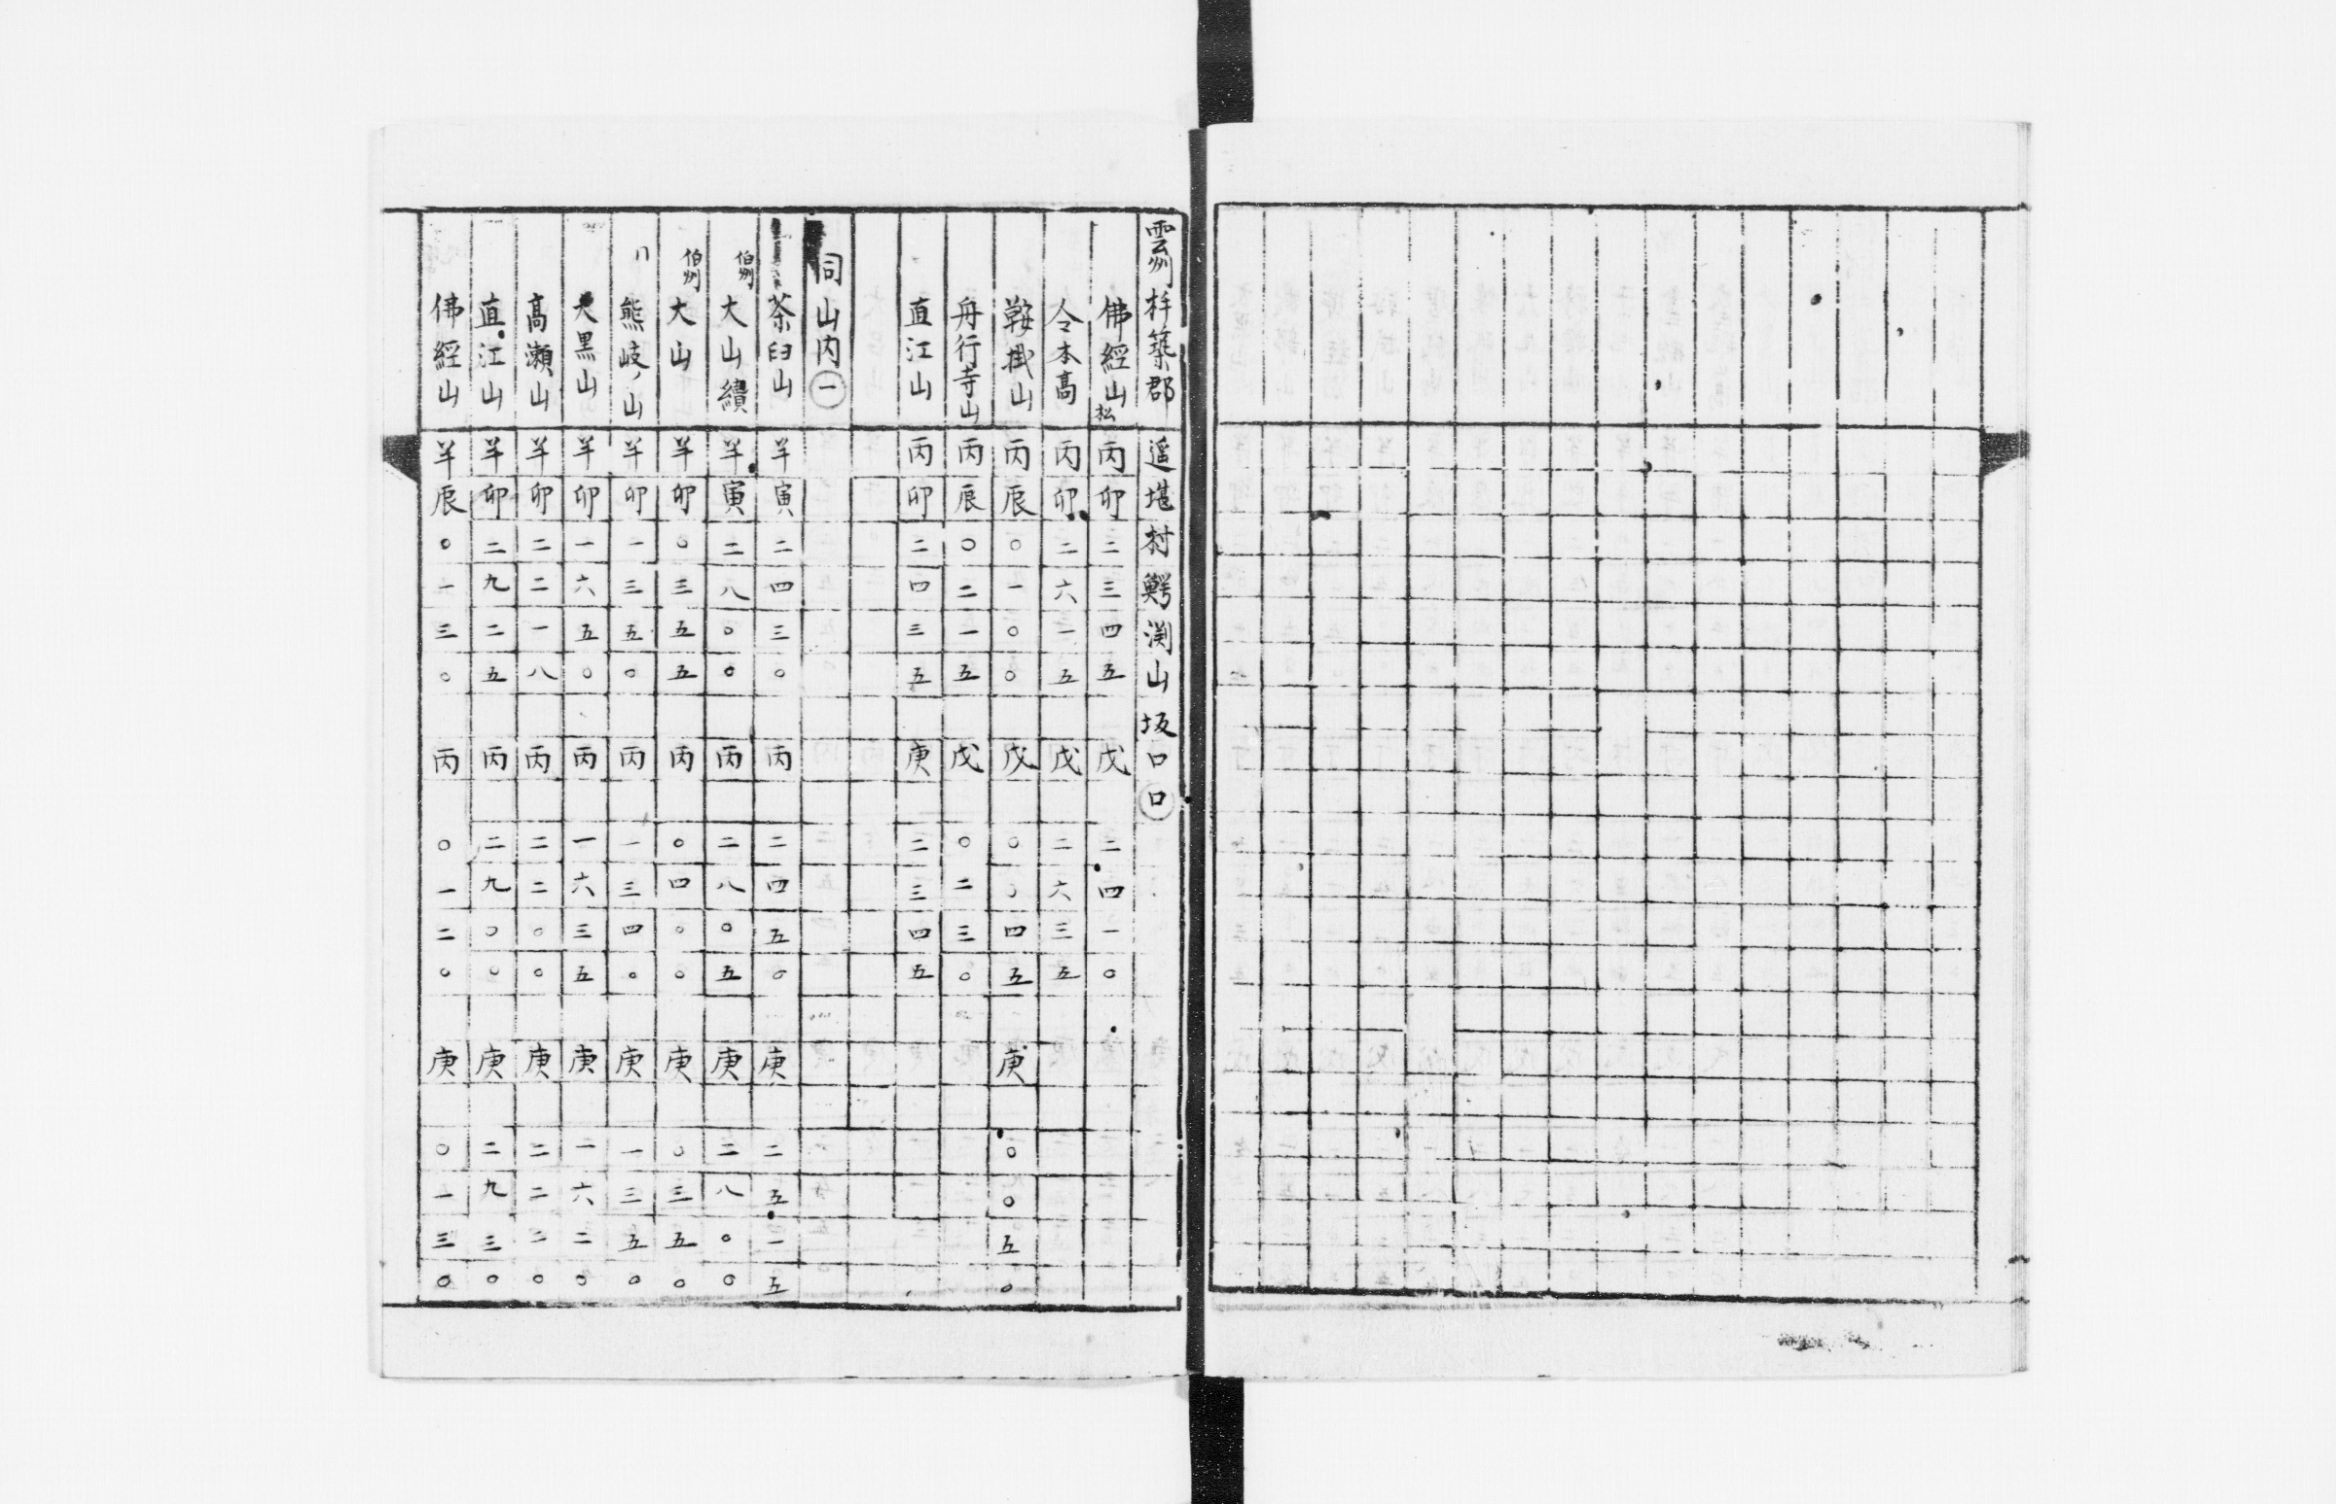 雲州杵築郡遥堪村鰐渕山坂口㋺
佛經山松丙卯二三四五戊二四一〇
令本高丙卯二六一五戊二六三五
鞍掛山丙辰〇一〇〇戊〇〇四五庚〇〇五〇
舟行寺山丙辰〇二一五戊〇二三〇
直江山丙卯二四三五庚二三四五
同山内㊀
茶臼山羊寅二四三〇丙二四五〇庚二五一五
伯州大山續羊寅二八〇〇丙二八〇五庚二八〇〇
伯州大山羊卯〇三五五丙〇四〇〇庚〇三五〇
〃熊岐ノ山羊卯一三五〇丙一三四〇庚一三五〇
大黒山羊卯一六五〇丙一六三五庚一六二〇
高瀬山羊卯二二一八丙二二〇〇庚二二二〇
直江山羊卯二九二五丙二九〇〇庚二九三〇
佛經山羊辰〇一三〇丙〇一二〇庚〇一三〇